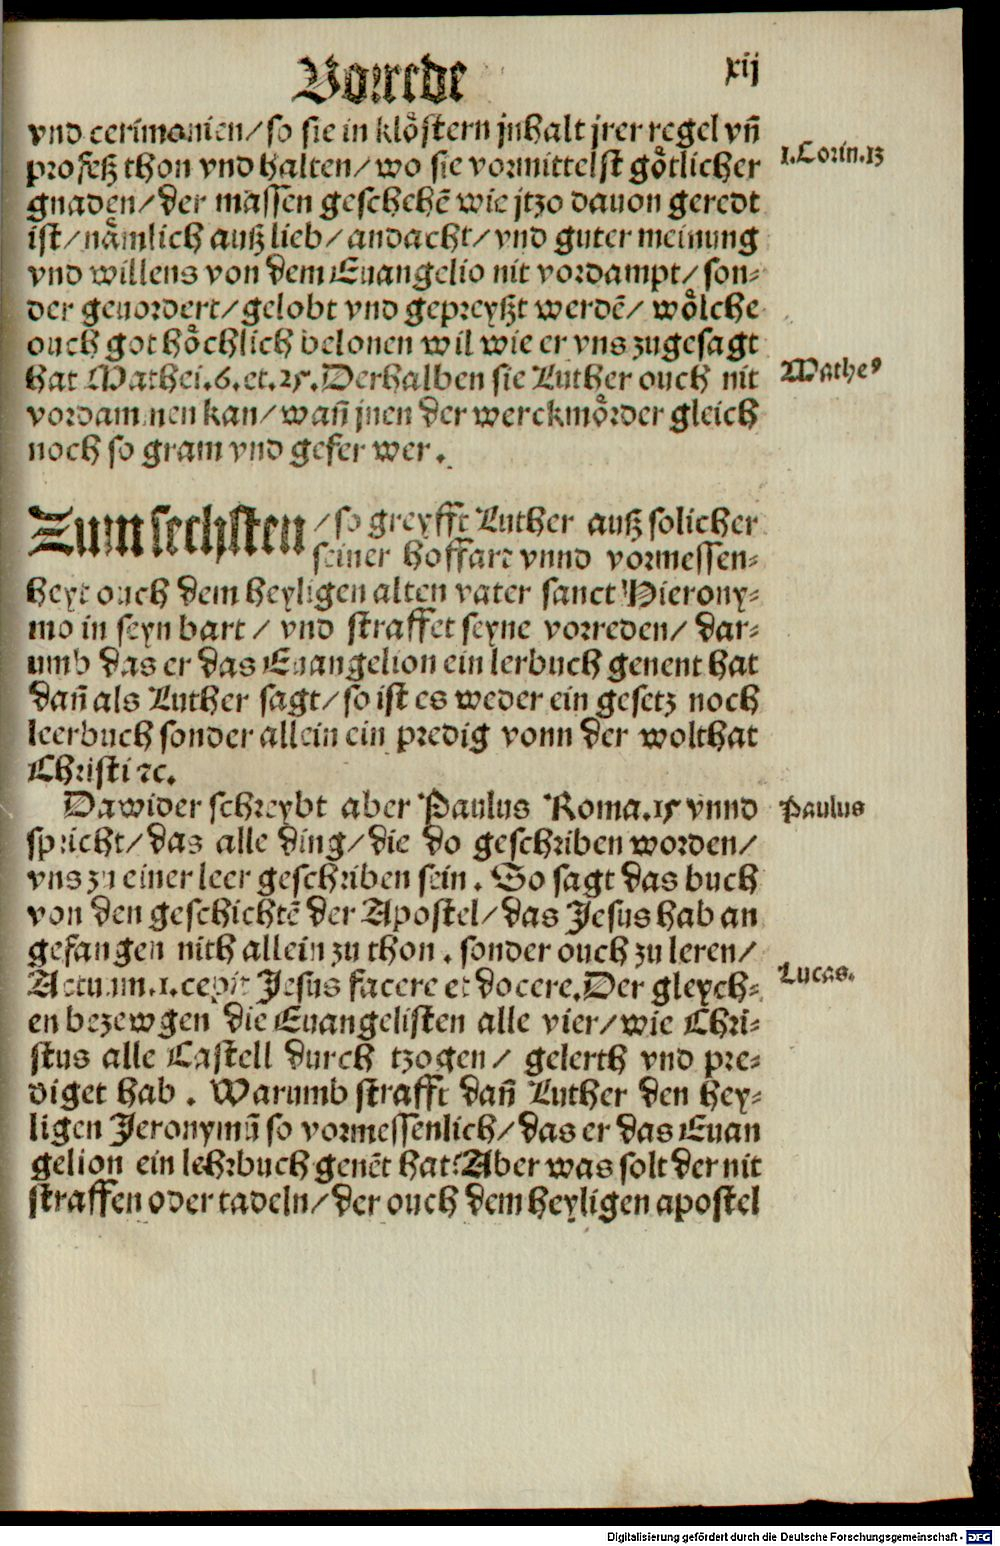 Vorrede
xij
vnd cerimonien/ so sie in klöstern jnhalt jrer regel vñ
profeß thon vnd halten/ wo sie vormittelst götlicher
1.Corin.13
gnaden/ der massen geschehē wie jtzo dauon geredt
ist/ nämlich auß lieb/ andacht/ vnd guter meinung
vnd willens von dem Euangelio nit vordampt/ son-
der geuordert/ gelobt vnd gepreyßt werdē/ wölche
ouch got höchlich belonen wil wie er vns zugesagt
hat Mathei.6.et.25. Derhalben sie Luther ouch nit
Mathe⁹
vordamnen kan/ wañ jnen der werckmörder gleich
noch so gram vnd gefer wer.
Zum sechsten/ so greyfft Luther auß solicher
seiner hoffart vnnd vormessen-
heyt ouch dem heyligen alten vater sanct Hierony-
mo in seyn bart/ vnd straffet seyne vorreden/ dar-
umb das er das Euangelion ein lerbuch genent hat
dañ als Luther sagt/ so ist es weder ein gesetz noch
leerbuch sonder allein ein predig vonn der wolthat
Christi ⁊c.
Dawider schreybt aber Paulus Roma.15 vnnd
Paulus
spricht/ das alle ding/ die do geschriben worden/
vns zu einer leer geschriben sein. So sagt das buch
von den geschichtē der Apostel/ das Jesus hab an
gefangen nith allein zu thon. sonder ouch zu leren/
Actuum.1.cepit Jesus facere et docere. Der gleych-
Lucas.
en bezewgen die Euangelisten alle vier/ wie Chri-
stus alle Castell durch tzogen/ gelerth vnd pre-
diget hab. Warumb strafft dañ Luther den hey-
ligen Jeronymū so vormessenlich/ das er das Euan
gelion ein lehrbuch genēt hat? Aber was solt der nit
straffen oder tadeln/ der ouch dem heyligen apostel
Digitalisierung gefördert durch die Deutsche Forschungsgemeinschaft - DFG